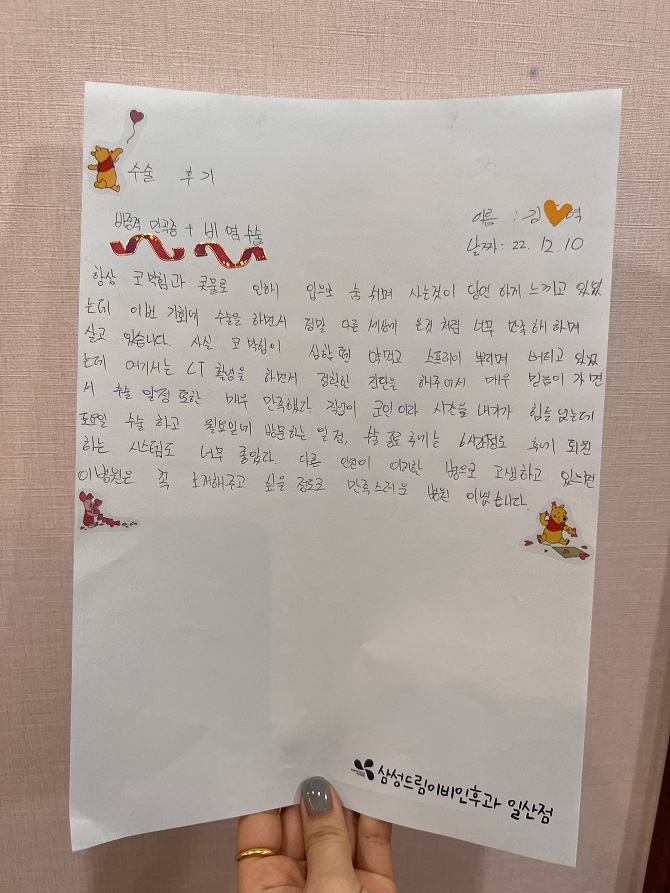 수술 후기
비중격 만곡증 + 비염 수술
이름 : 김 혁
날짜 : 22. 12. 10
항상 코막힘과 콧물로 인하여 입으로 숨 쉬며 사는것이 당연 하게 느끼고 있었
는데 이번 기회에 수술을 하면서 정말 다른 세상에 온것 처럼 너무 만족 해 하며
살고 있습니다. 사실 코막힘이 심할땐 약먹고 스프레이 뿌리며 버티고 있었
는데 여기서는 CT 촬영을 하면서 정확한 진단을 해주어서 매우 믿음이 가면
서 수술 일정 또한 매우 만족했다. 직업이 군인이라 시간을 내기가 힘들었는데
토요일 수술 하고 월요일에 방문하는 일정, 수술 종료 후에는 6시간정도 후에 퇴원
하는 시스템도 너무 좋았다. 다른 인원이 이러한 병으로 고생하고 있으면
이병원은 꼭 소개해주고 싶을 정도로 만족스러운 병원 이였습니다.
삼성드림이비인후과 일산점